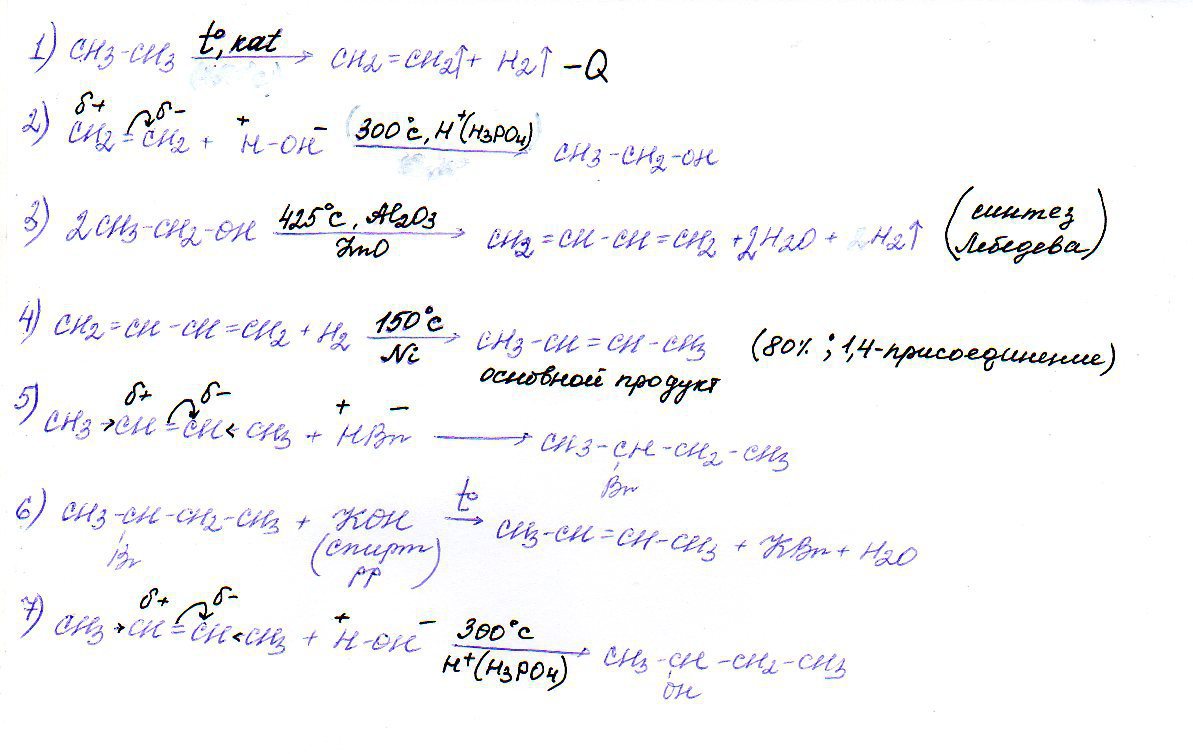 1) CH3-CH3 t°, kat → CH2=CH2↑ + H2↑ -Q
2) δ+ CH2=CH2 δ- + +H-OH- (300°C, H+(H3PO4)) → CH3-CH2-OH
3) 2CH3-CH2-OH 425°C, Al2O3 ZnO → CH2=CH-CH=CH2 + 2H2O + H2↑ (синтез Лебедева)
4) CH2=CH-CH=CH2 + H2 150°C Ni → CH3-CH=CH-CH3 (80%; 1,4-присоединение)
основной продукт
5) CH3→CH δ+ =CH δ- ←CH3 + +HBr- → CH3-CH-CH2-CH3
Br
6) CH3-CH-CH2-CH3 + KOH t° → CH3-CH=CH-CH3 + KBr + H2O
Br (спирт рр)
7) CH3→CH δ+ =CH δ- ←CH3 + +H-OH- 300°C H+(H3PO4) → CH3-CH-CH2-CH3
OH